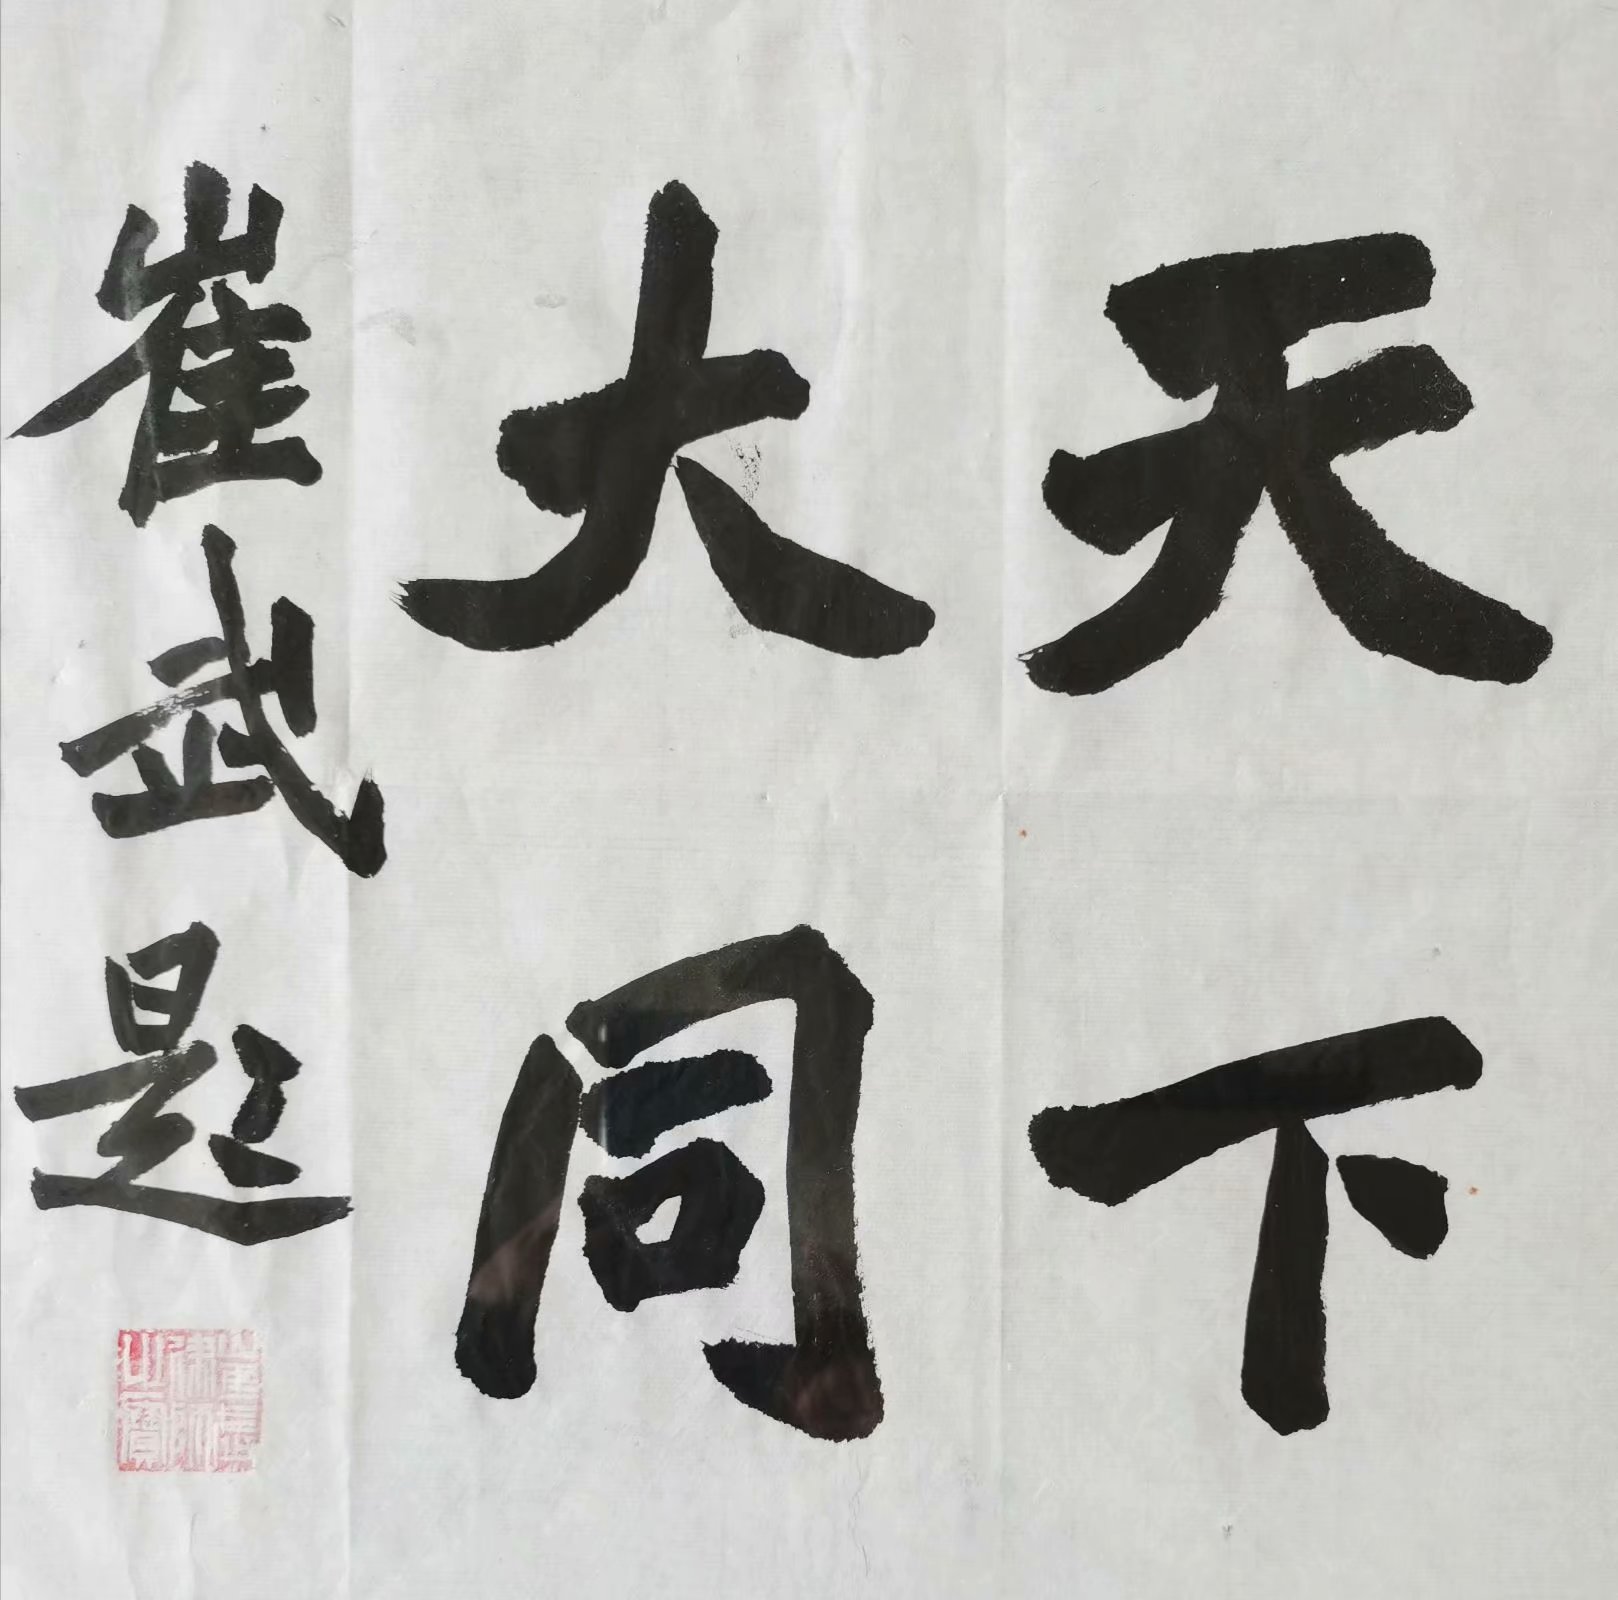 天下
大同
崔武题